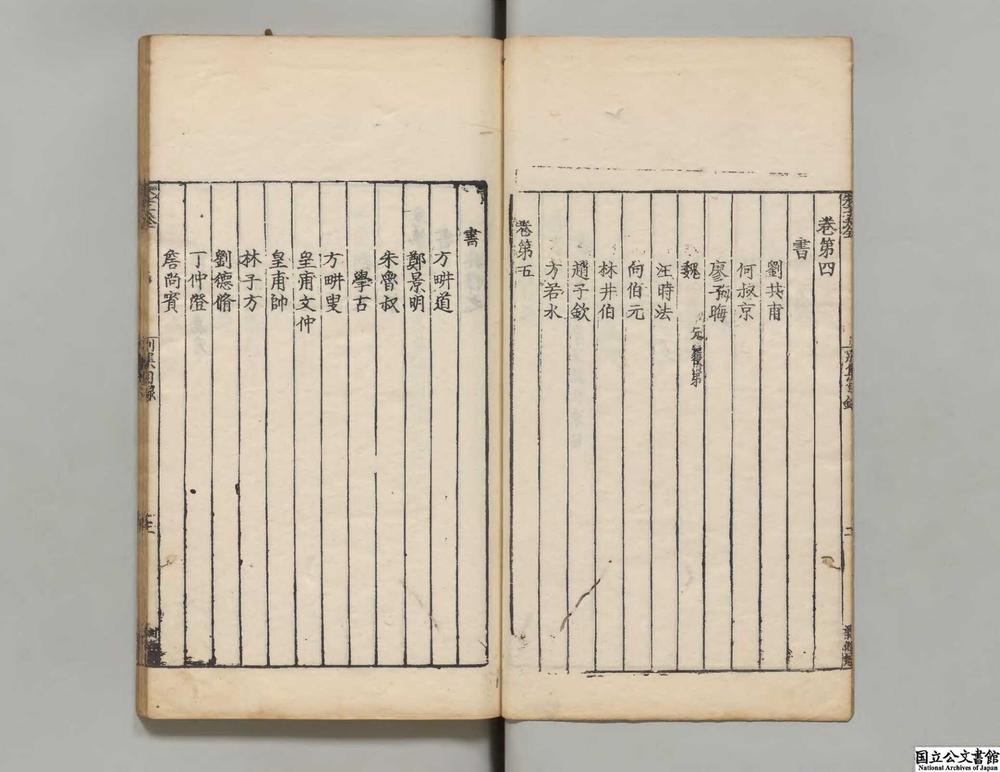 卷第四
書
劉共甫
何叔京
廖子晦
魏元履弟
汪時法
向伯元
林井伯
趙子欽
方若水
卷第五
書
方畊道
鄭景明
朱魯叔
學古
方畊叟
皇甫文仲
皇甫帥
林子方
劉德脩
丁仲澄
詹尚賓
国立公文書館
National Archives of Japan